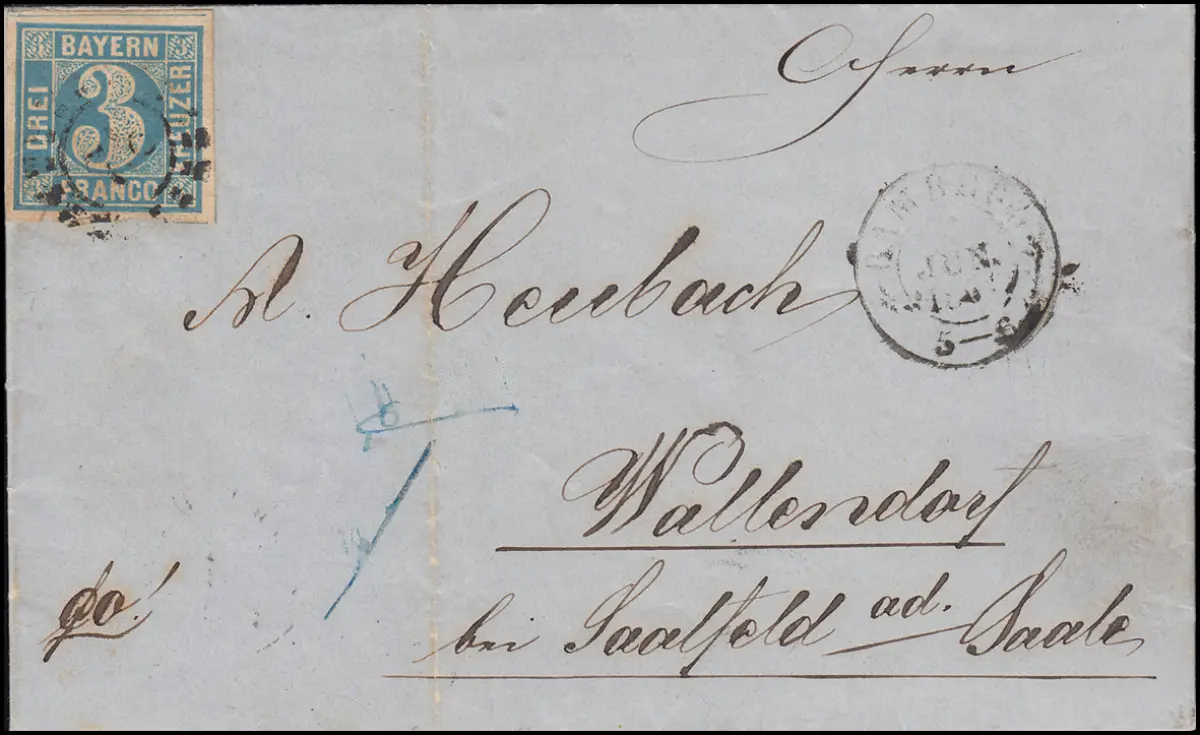 BAYERN
DREI
3
KREUZER
FRANCO
Herrn
BAMBERG
JUN.
5-6
A. Heubach
Wallendorf
bei Saalfeld ad. Saale